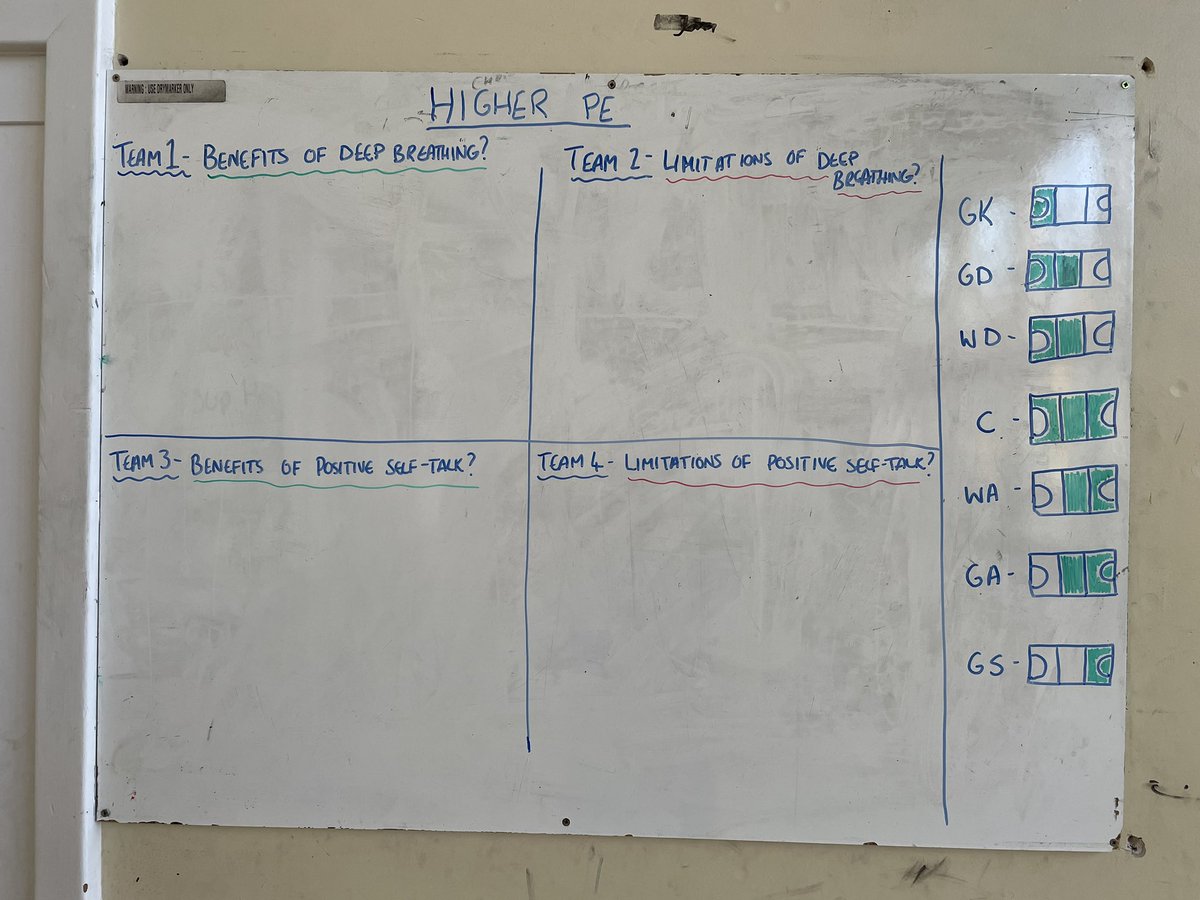 WARNING : USE DRYMARKER ONLY
HIGHER PE
TEAM 1 - BENEFITS OF DEEP BREATHING?
TEAM 2 - LIMITATIONS OF DEEP
BREATHING?
TEAM 3 - BENEFITS OF POSITIVE SELF-TALK?
TEAM 4 - LIMITATIONS OF POSITIVE SELF-TALK?
GK -
GD -
WD -
C -
WA -
GA -
GS -